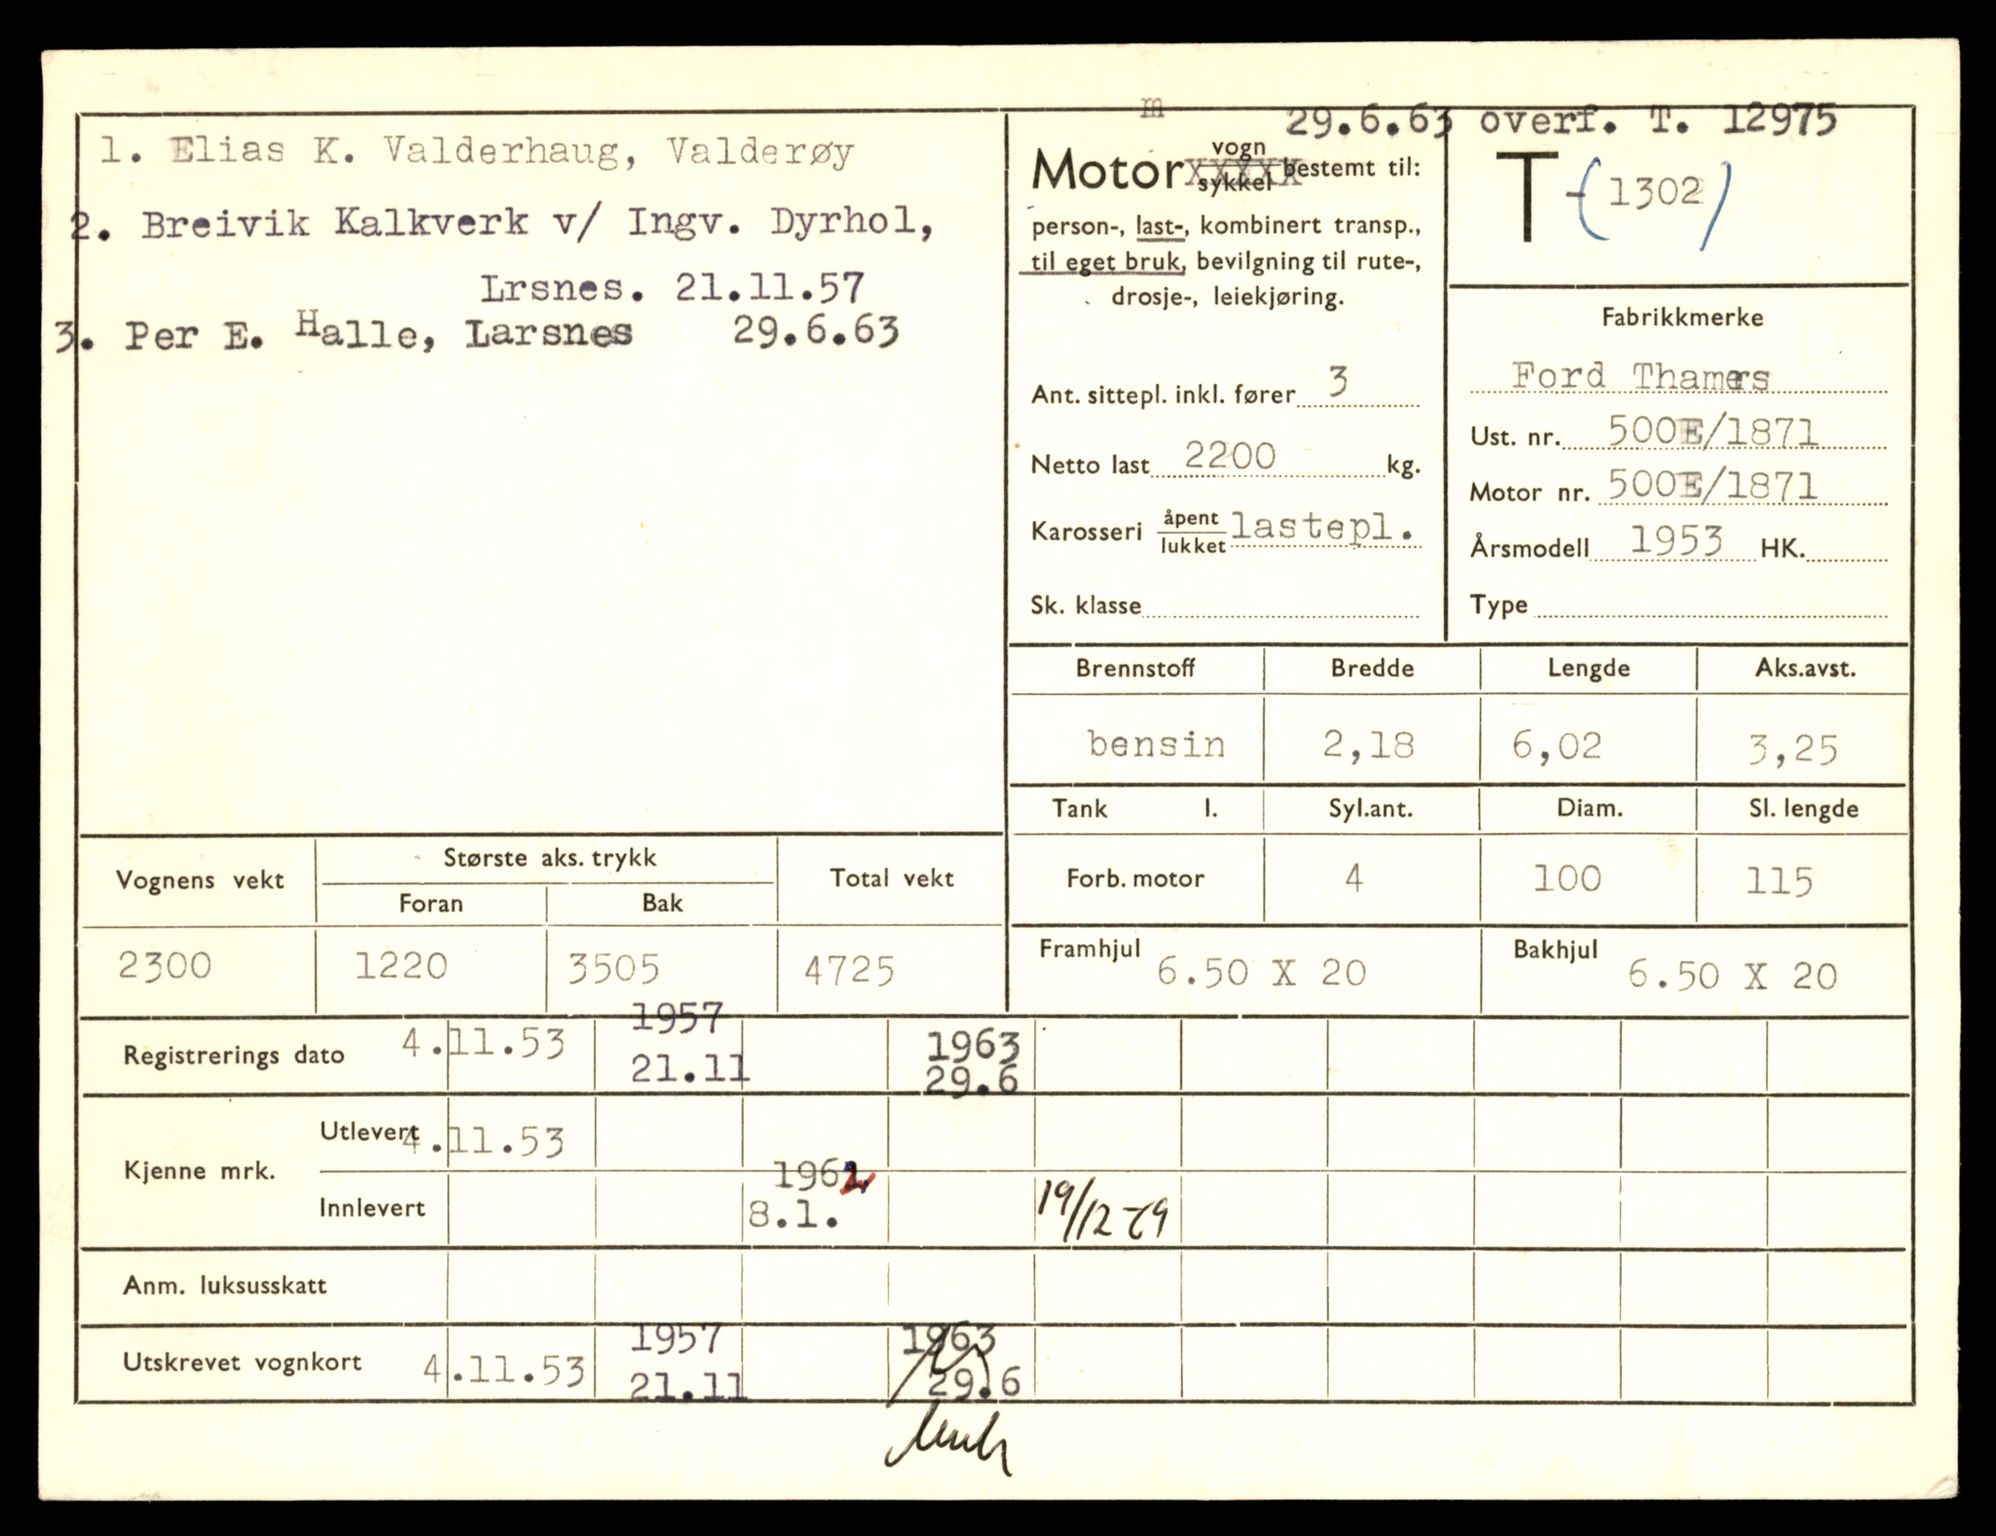 1. Elias K. Valderhaug, Valderøy
2. Breivik Kalkverk v/ Ingv. Dyrhol,
Lrsnes. 21.11.57
3. Per E. Halle, Larsnes 29.6.63
m
29.6.63 overf. T. 12975
Motor vogn sykkel bestemt til:
person-, last-, kombinert transp.,
til eget bruk, bevilgning til rute-,
drosje-, leiekjøring.
Ant. sittepl. inkl. fører 3
Netto last 2200 kg.
Karosseri åpent lukket lastepl.
Sk. klasse
T-(1302)
Fabrikkmerke
Ford Thamers
Ust. nr. 500E/1871
Motor nr. 500E/1871
Årsmodell 1953 HK.
Type
Brennstoff Bredde Lengde Aks.avst.
bensin 2,18 6,02 3,25
Tank l. Syl.ant. Diam. Sl. lengde
Forb. motor 4 100 115
Framhjul 6.50 X 20 Bakhjul 6.50 X 20
Vognens vekt Største aks. trykk Total vekt
Foran Bak
2300 1220 3505 4725
1957
Registrerings dato 4.11.53 21.11 1963
29.6
Kjenne mrk.
Utlevert 4.11.53
1962
Innlevert 8.1. 19/12-79
Anm. luksusskatt
1957 1963
Utskrevet vognkort 4.11.53 21.11 29.6